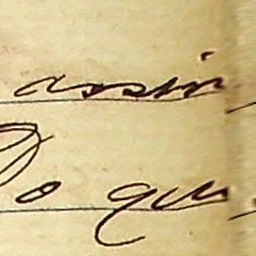 assim
Do que